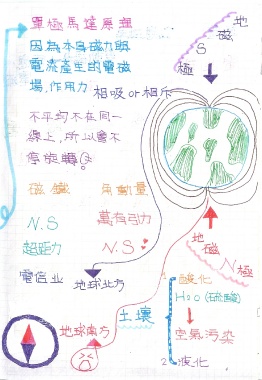 單極馬達原理
因為本身磁力與
電流產生的電磁
場,作用力 相吸or相斥
不平均不在同一
線上,所以會不
停旋轉
地磁S極
磁鐵 角動量
N.S 萬有引力
超距力 N.S
電信业 地球北方
地磁N極
地球南方 土壤
1 酸化
H2O (硫酸)
空氣污染
2 液化